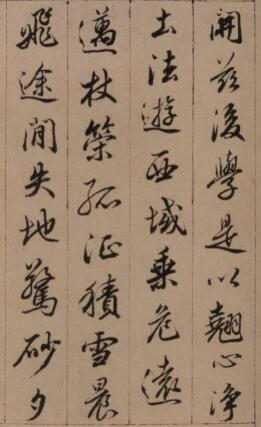 開茲後學是以翹心淨
土法遊西域乘危遠
邁杖策孤征積雪晨
飛途間失地驚砂夕